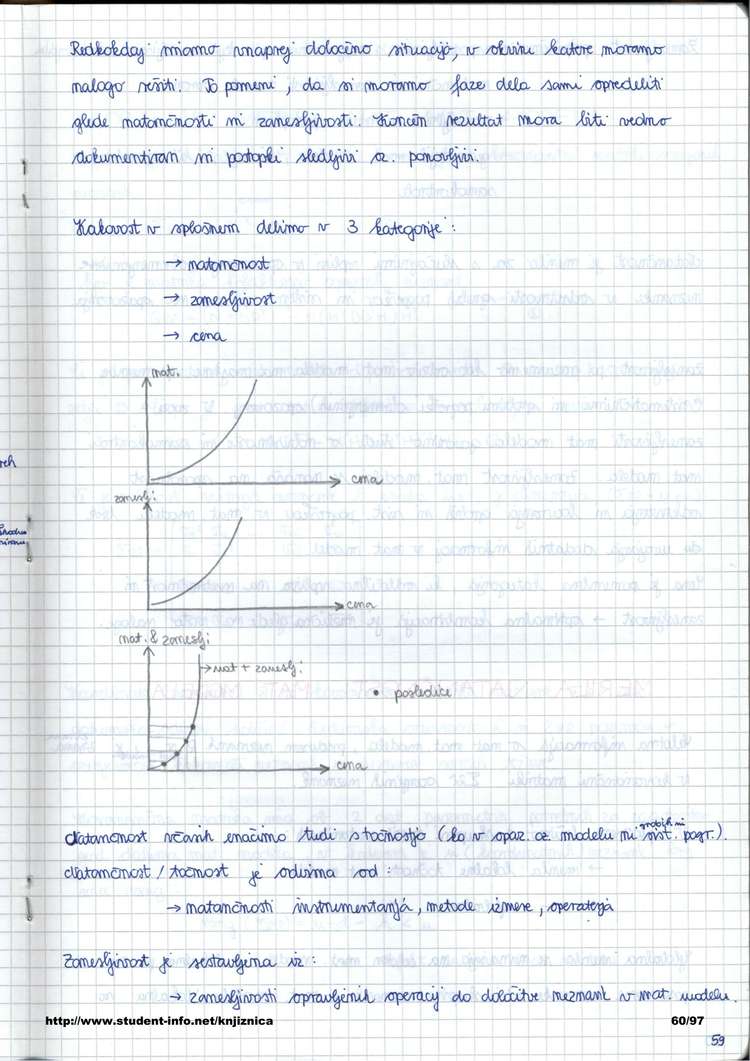 Redkokdaj imamo vnaprej določeno situacijo, v okviru katere moramo
nalogo rešiti. To pomeni, da si moramo faze dela sami opredeliti
glede natančnosti in zanesljivosti. Končen rezultat mora biti vedno
dokumentiran in postopki sledljivi oz. ponovljivi.
Kakovost v splošnem delimo v 3 kategorije:
→ natančnost
→ zanesljivost
→ cena
nat.
cena
zaneslj.
cena
nat. & zaneslj.
→ nat + zaneslj.
• posledice
cena
Natančnost včasih enačimo tudi s točnostjo (ko v opaz. oz modelu ni grobih in sist. pogr.).
Natančnost / točnost je odvisna od:
→ natančnosti instrumentarija, metode izmere, operaterja
Zanesljivost je sestavljena iz:
→ zanesljivosti opravljenih operacij do določitve neznank v mat. modelu.
http://www.student-info.net/knjiznica 60/97
59